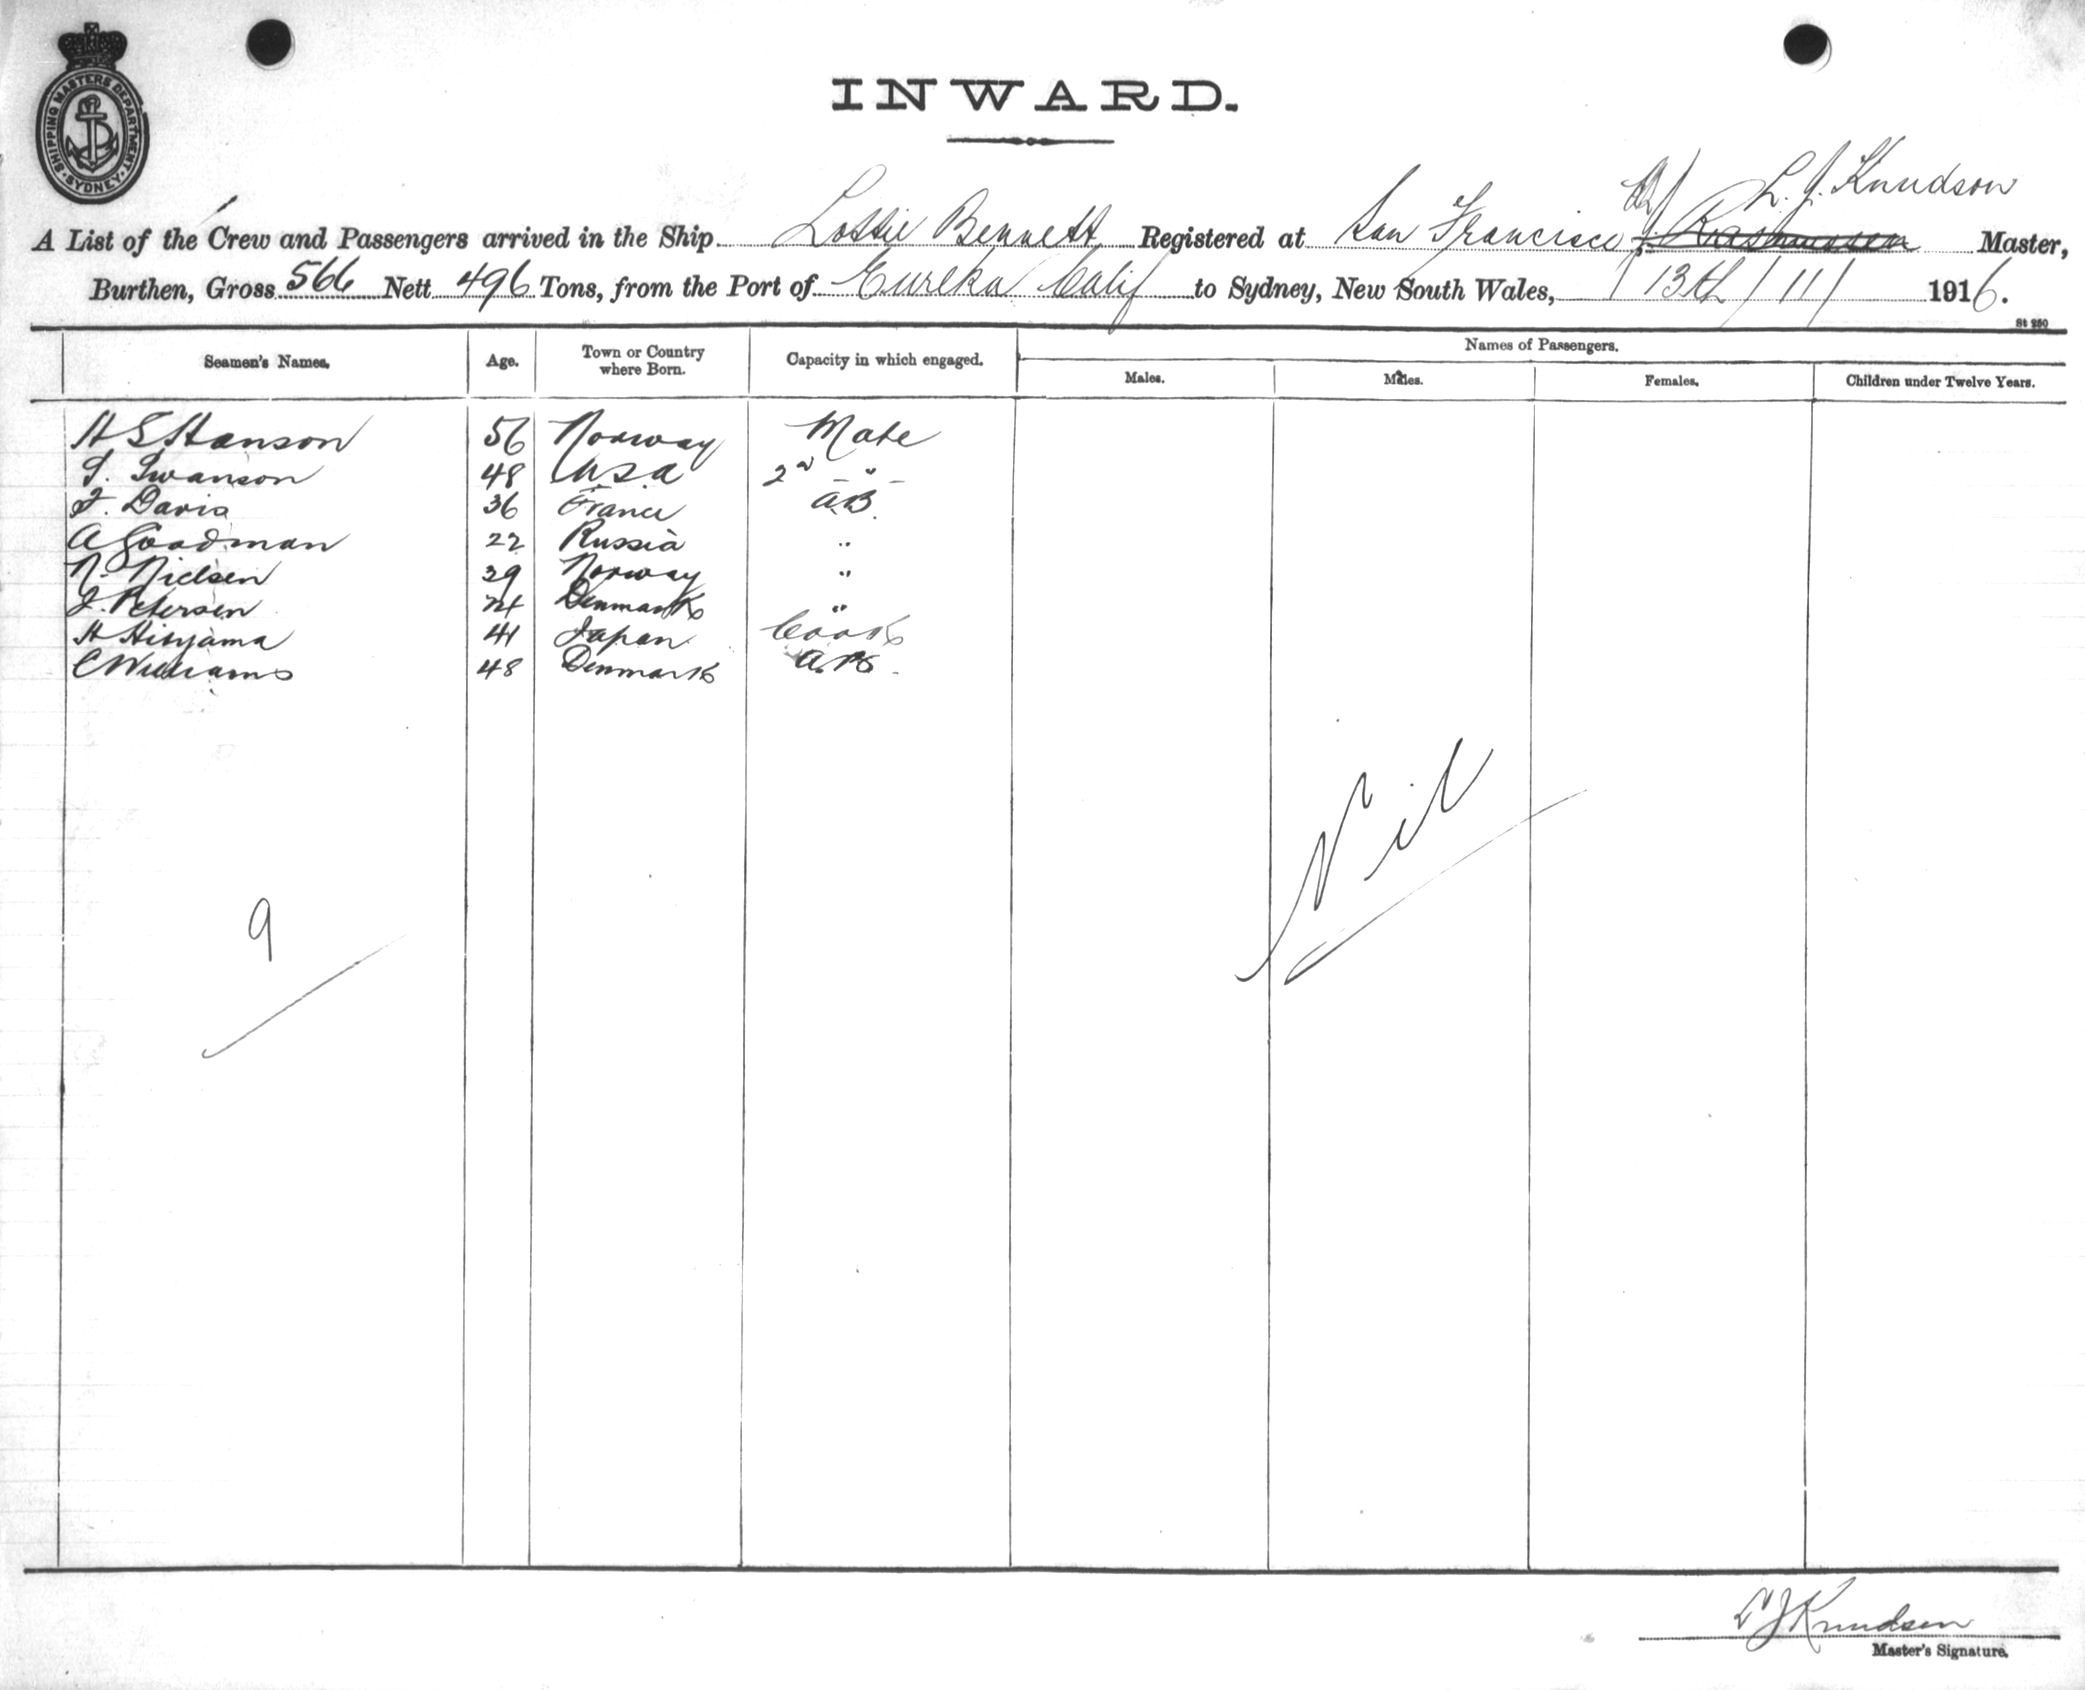 SHIPPING MASTERS DEPARTMENT. SYDNEY.
INWARD.
L. J. Knudson
A List of the Crew and Passengers arrived in the Ship Lottie Bennett Registered at San Francisco, J. Rasmussen Master,
Burthen, Gross 566 Nett 496 Tons, from the Port of Eureka Calif to Sydney, New South Wales, 13th/11/ 1916.
St 250
Seamen's Names. Age. Town or Country where Born. Capacity in which engaged. Names of Passengers.
Males. Males. Females. Children under Twelve Years.
H S Hanson 56 Norway Mate
S. Swanson 48 U.S.A 2nd "
F. Davis 36 France AB.
A Goodman 22 Russia "
N. Nielsen 39 Norway "
J. Petersen 24 Denmark "
H 41 Japan Cook
C Williams 48 Denmark A.B.
Nil
9
L J Knudsen
Master's Signature.